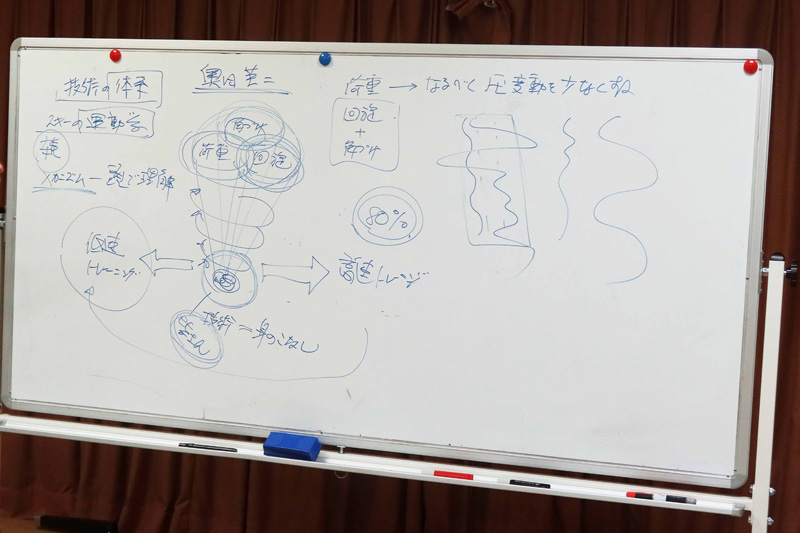 技術の体系
スキーの運動学
メカニズム ― 頭で理解
低速
トレーニング
角づけ
荷重
回旋
高速トレーニング
技術 = 身のこなし
荷重 → なるべく圧変動を少なくする
回旋
+
角づけ
80%